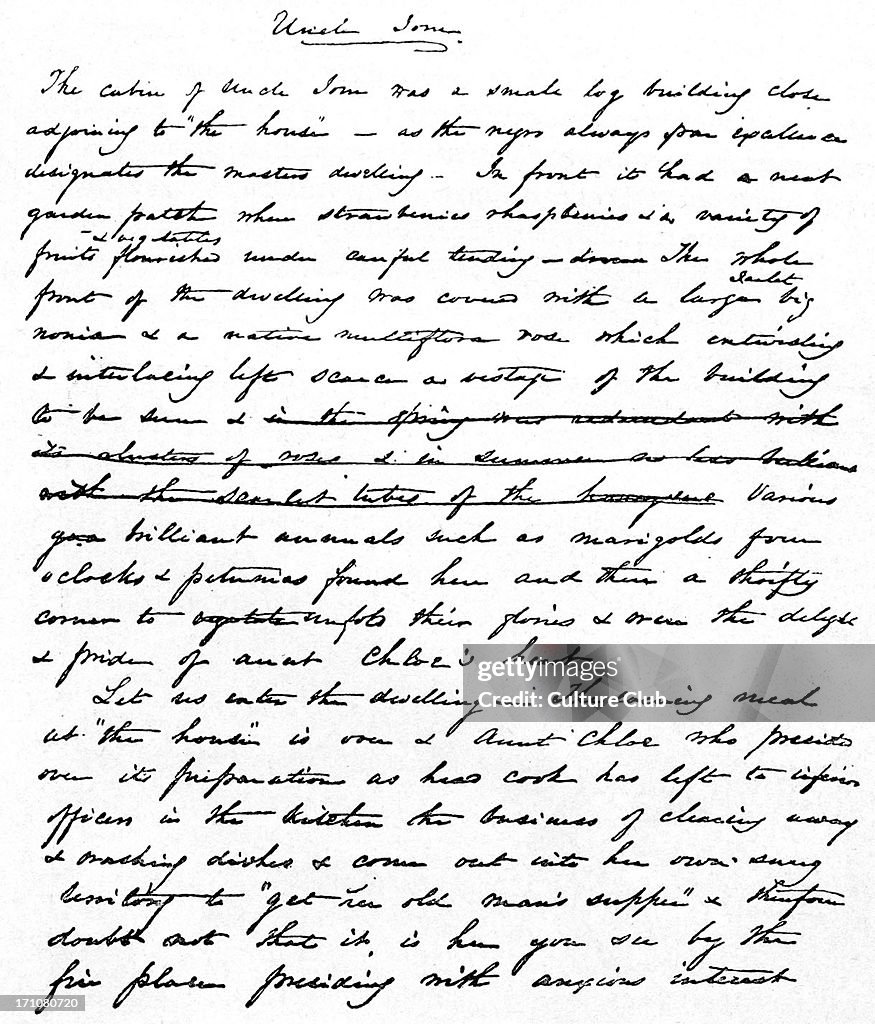 Uncle Tom.
The cabin of Uncle Tom was a small log building close
adjoining to "the house" — as the negro always par excellence
designates the masters dwelling — In front it had a neat
garden patch where strawberries rhaspberries & a variety of
& vegetables
fruits flourished under careful tending — The whole
Scarlet
front of the dwelling was covered with a large big
nonia & a native multiflora rose which entwisting
& interlacing left scarce a vestage of the building
to be seen & in the spring was redundant with
its clusters of roses & in summer no less brilliant
with the scarlet tubes of the Various
brilliant annuals such as marigolds four
oclocks & petunias found here and there a thrifty
corner to vegetate unfold their glories & were the delight
& pride of aunt Chloe's heart
Let us enter the dwelling The evening meal
at "the house" is over & Aunt Chloe who presided
over its preparation as head cook has left to inferior
officers in the kitchen the business of clearing away
& washing dishes & come out into her own snug
territory to "get her old man's supper" & therefore
doubt not that it is her you see by the
fire place presiding with anxious interest
gettyimages
Credit: Culture Club
171080720